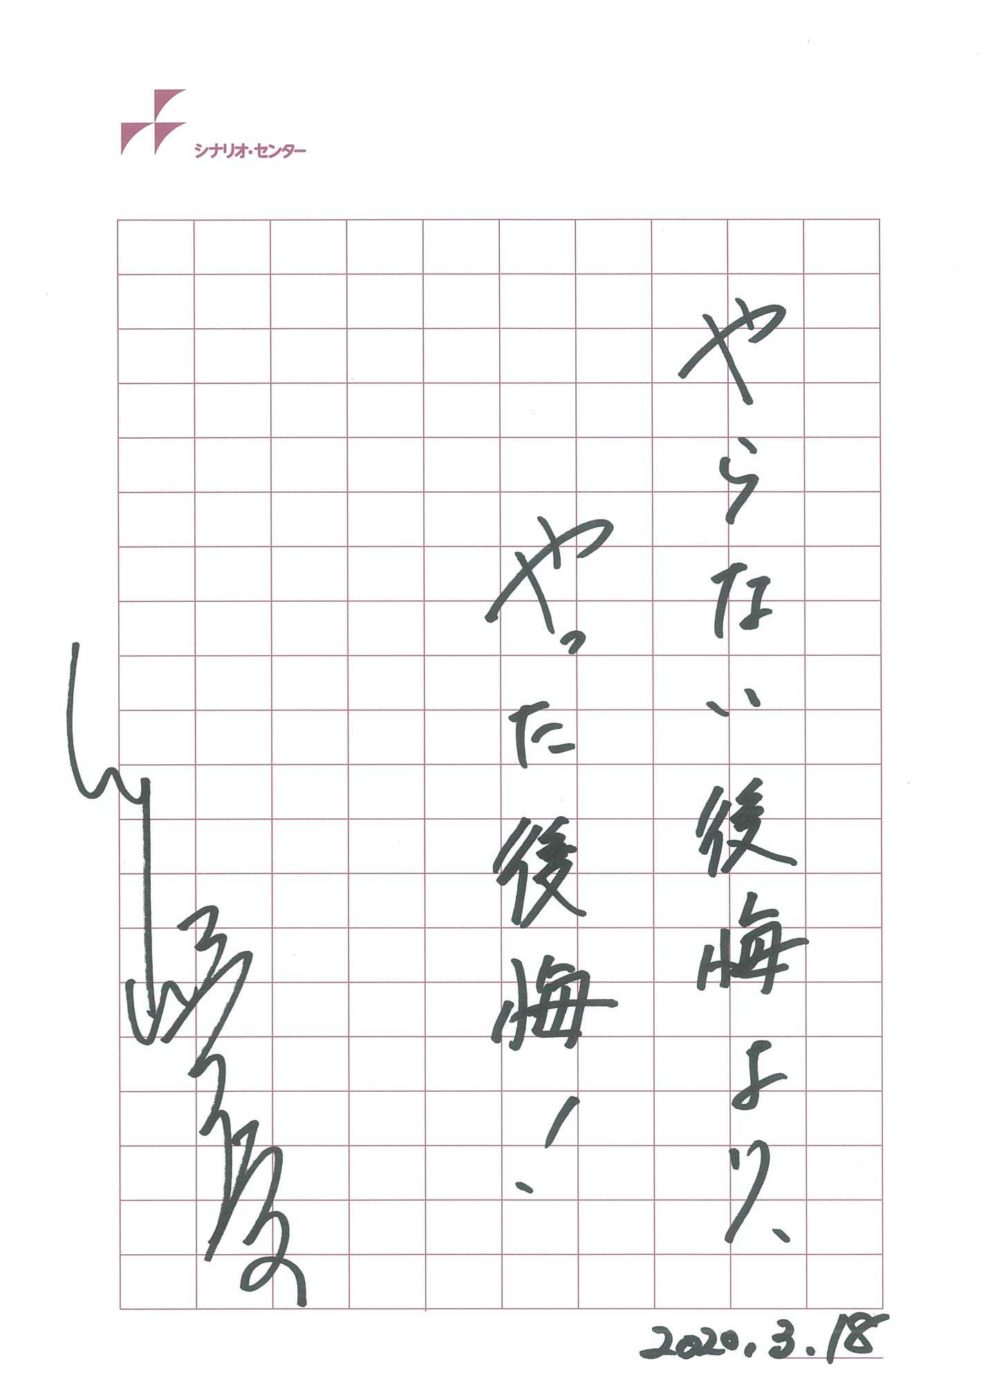 シナリオ・センター
やらない後悔より、
やった後悔!
2020.3.18